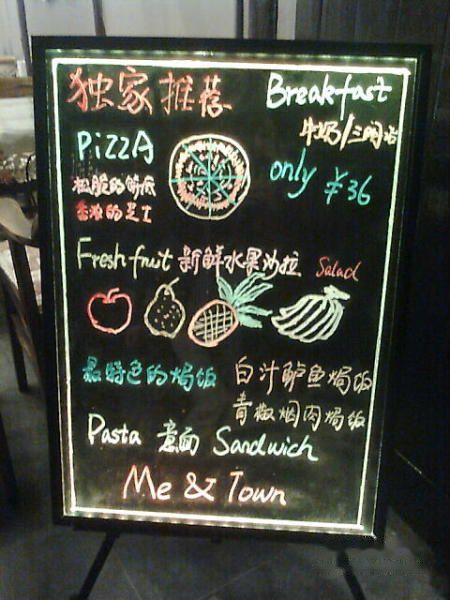 独家推荐
Breakfast
牛奶/三明治
PiZZA
only ¥36
粗脆的饼底
香浓的芝士
Fresh fruit 新鲜水果沙拉 Salad
最特色的焗饭
白汁鲈鱼焗饭
青椒烟肉焗饭
Pasta 意面 Sandwich
Me & Town